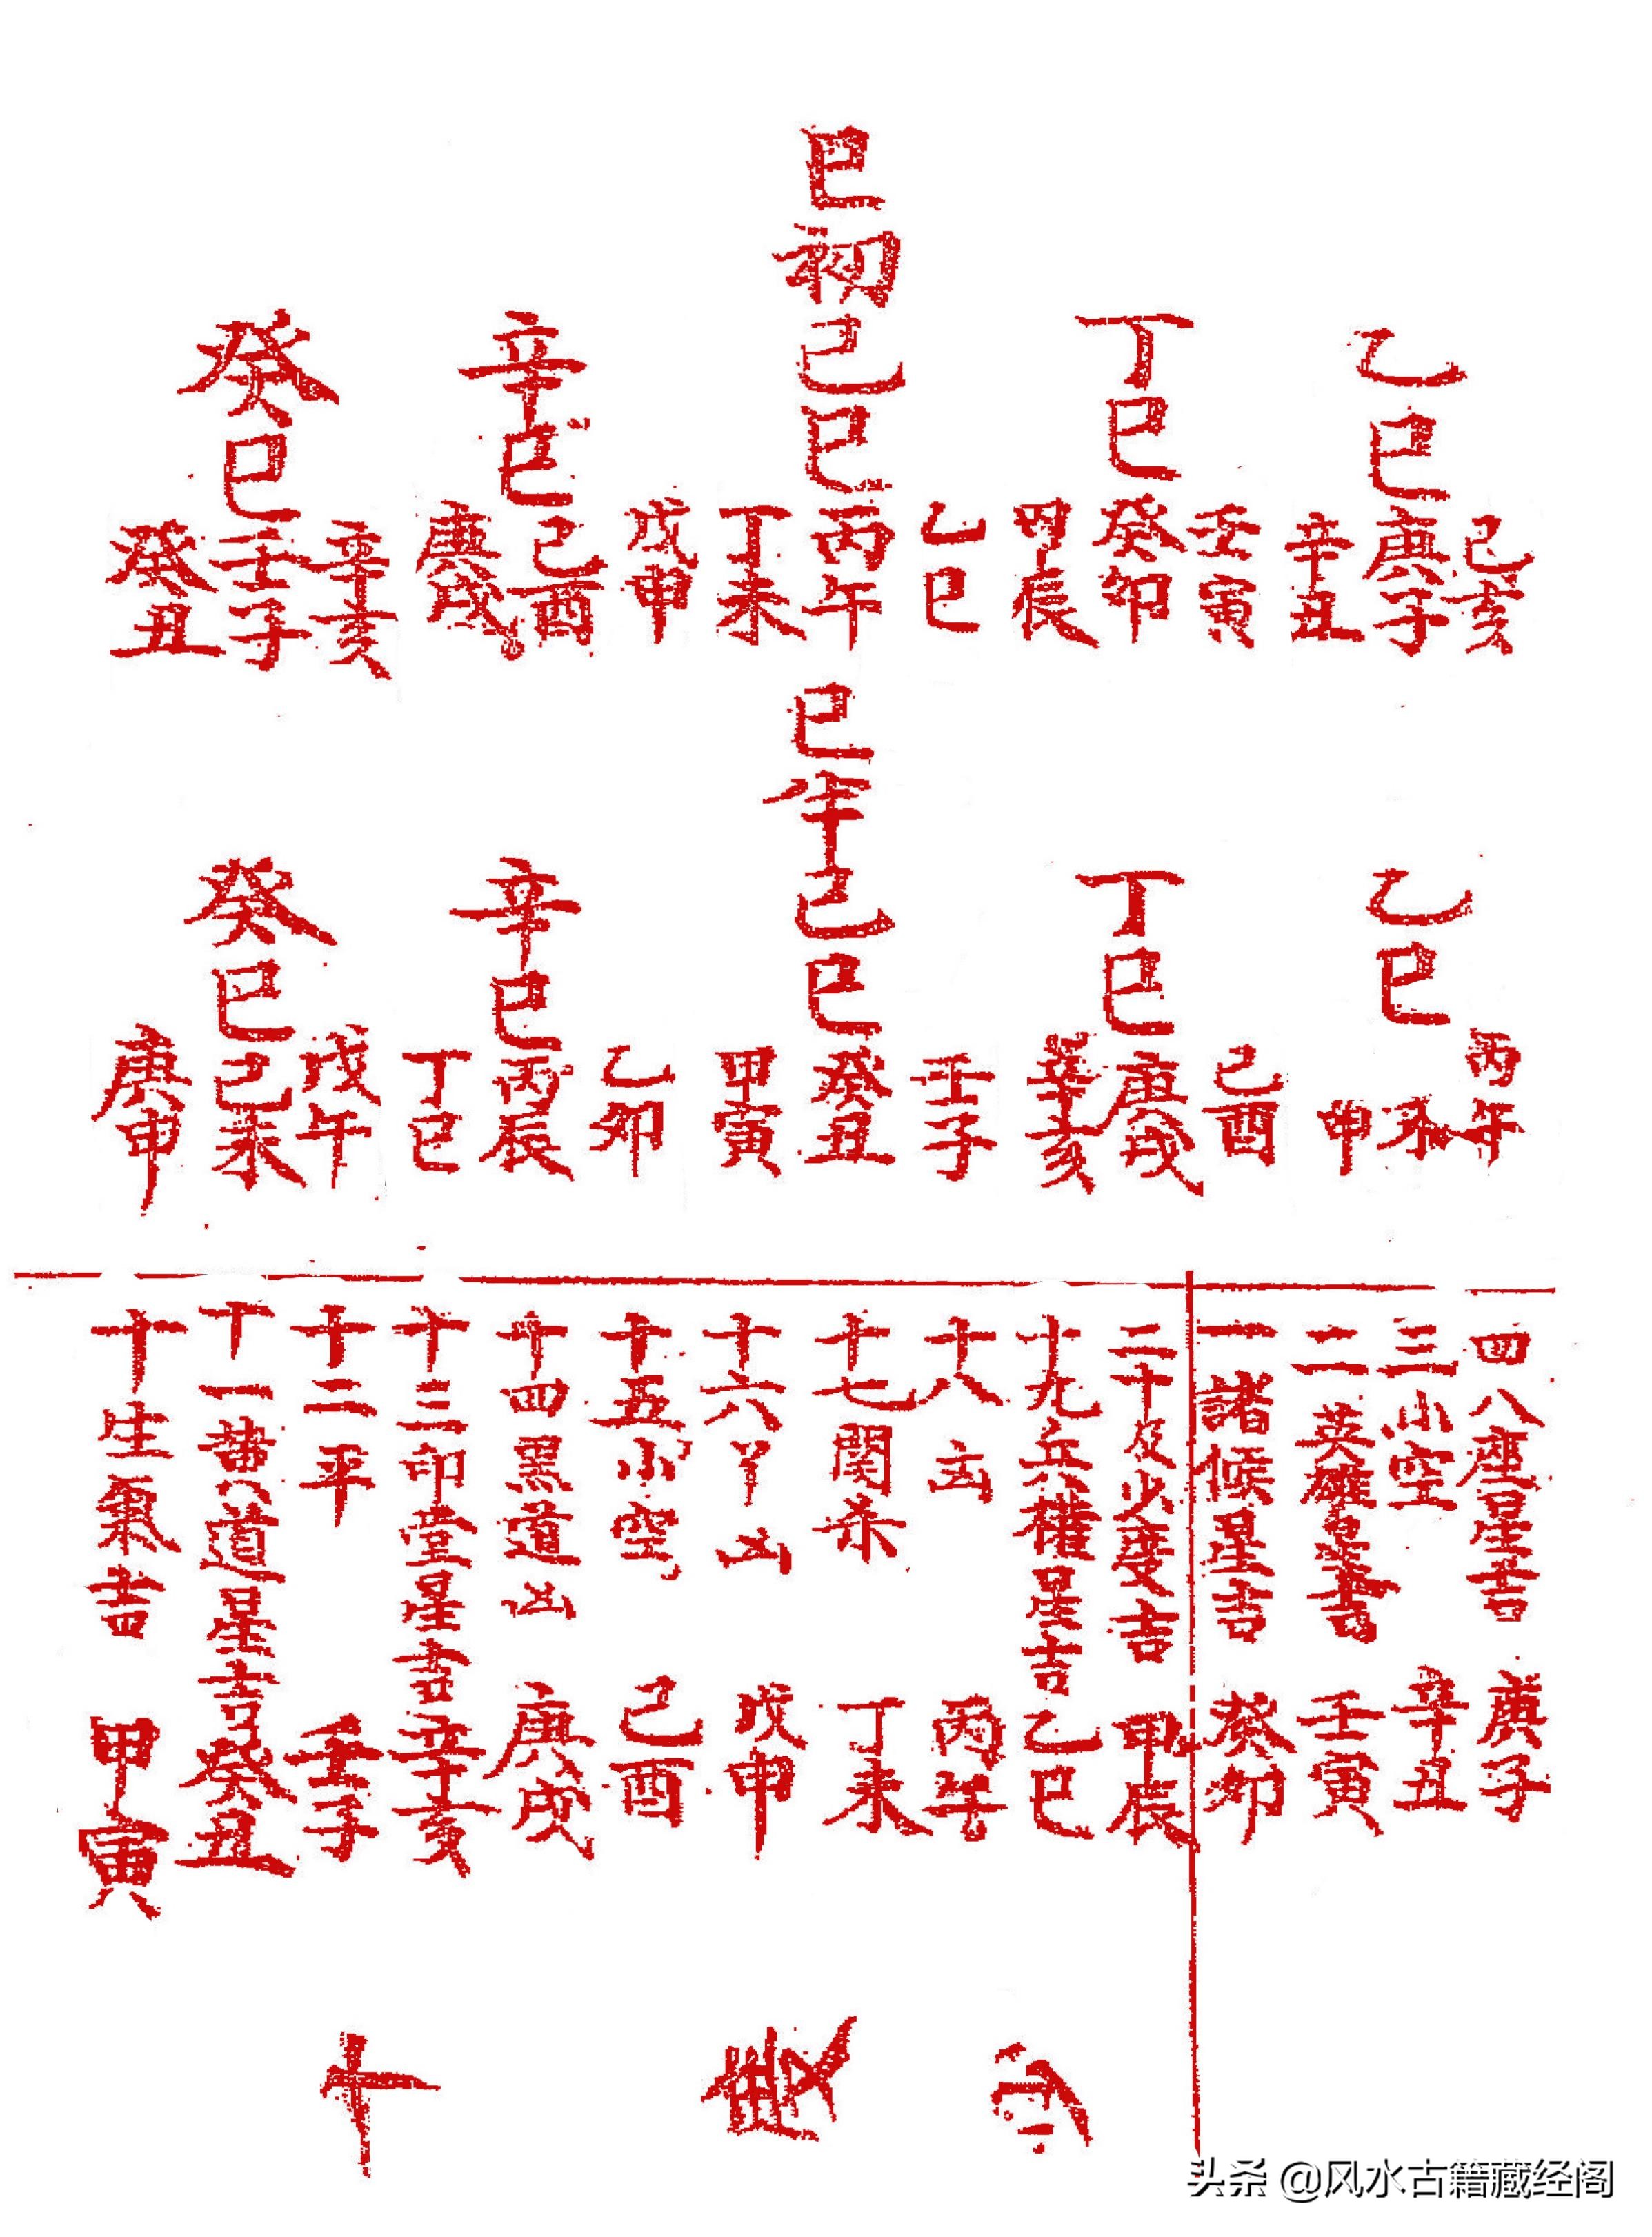 巳初
乙巳
己亥
庚子
辛丑
丁巳
壬寅
癸卯
甲辰
己巳
乙巳
丙午
丁未
辛巳
戊申
己酉
庚戌
癸巳
辛亥
壬子
癸丑
巳半
乙巳
丙午
未
申
丁巳
己酉
庚戌
辛亥
己巳
壬子
癸丑
甲寅
辛巳
乙卯
丙辰
丁巳
癸巳
戊午
己未
庚申
四八座星吉 庚子
三小空 辛丑
二英雄星吉 壬寅
一諸候星吉 癸卯
二十及火度吉 甲辰
十九兵權星吉 乙巳
十八 丙午
十七関杀 丁未
十六 凶 戊申
十五小空 己酉
十四黑道凶 庚戌
十三印堂星吉 辛亥
十二平 壬子
十一黄道星吉 癸丑
十生氣吉 甲寅
十
头条 @风水古籍藏经阁